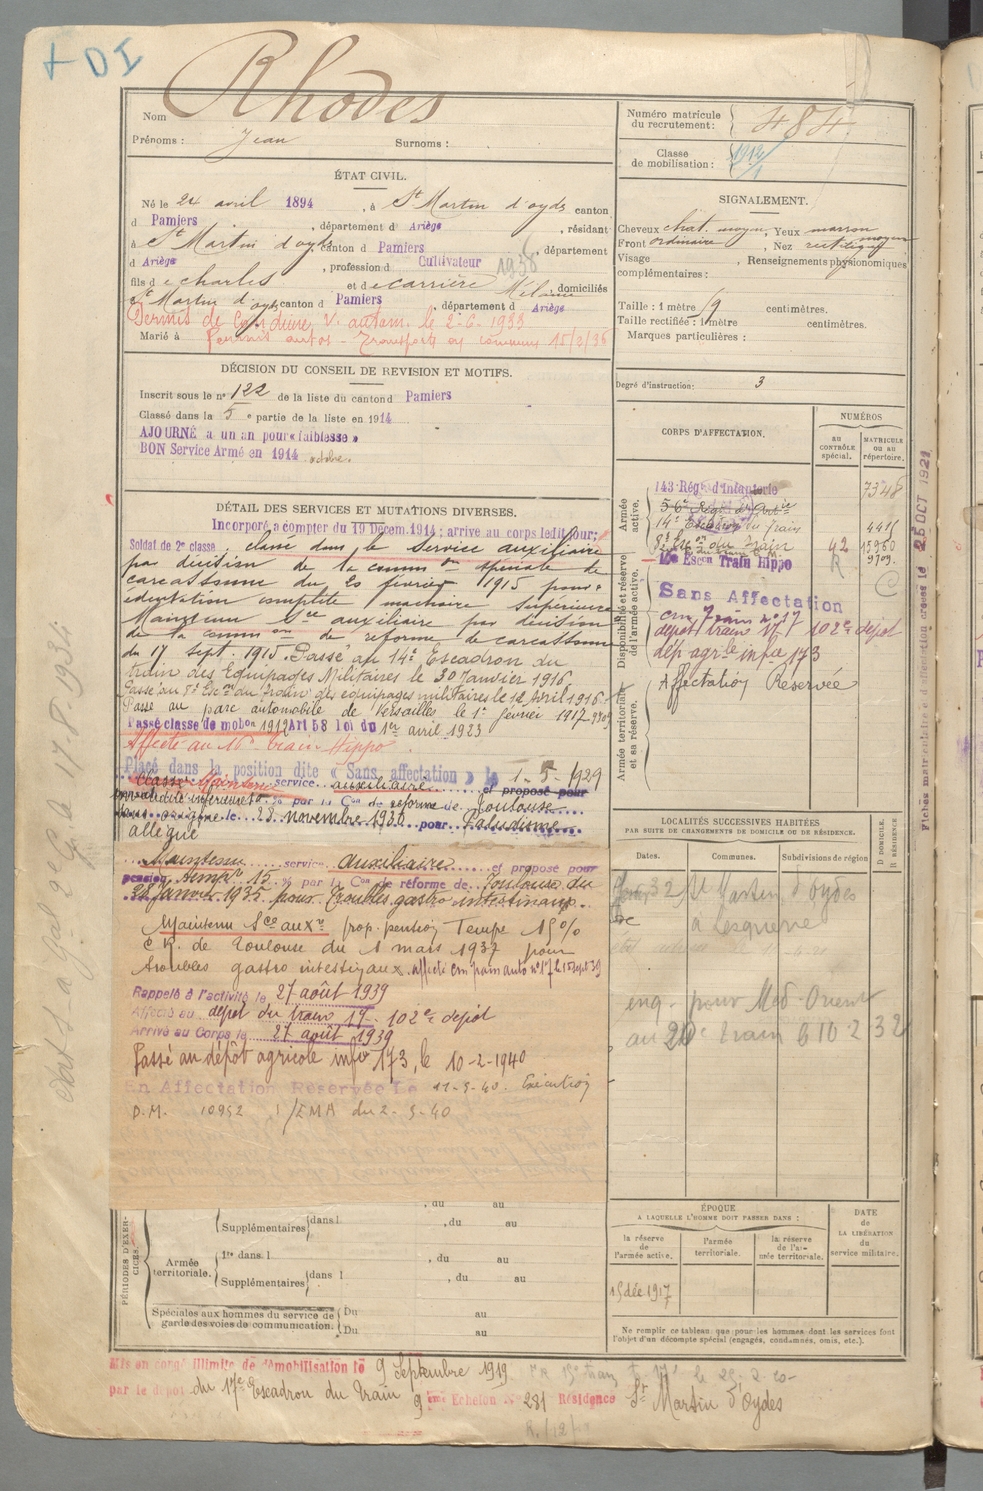 + DI
Nom Rhodes
Prénoms : Jean Surnoms :
Numéro matricule du recrutement : 484
Classe de mobilisation : 1912/1
ÉTAT CIVIL.
Né le 24 avril 1894, à St Martin d'oyds canton
d Pamiers, département d Ariège, résidant
à St Martin d'oyds canton d Pamiers, département
d Ariège, profession d Cultivateur 1936
fils de charles et de carrière Mélanie domiciliés
St Martin d'oyds canton d Pamiers, département d Ariège
Permis de Conduire V. autom. le 2-6-1933
Marié à
Permis autos - Transports en commun 15/2/36
SIGNALEMENT.
Cheveux chat. moyen, Yeux marron moyen
Front ordinaire, Nez rectiligne
Visage , Renseignements physionomiques
complémentaires :
Taille : 1 mètre 79 centimètres.
Taille rectifiée : 1 mètre centimètres.
Marques particulières :
Degré d'instruction : 3
DÉCISION DU CONSEIL DE REVISION ET MOTIFS.
Inscrit sous le n° 122 de la liste du canton d Pamiers
Classé dans la 5e partie de la liste en 1914
AJOURNÉ a un an pour « faiblesse »
BON Service Armé en 1914 octobre.
CORPS D'AFFECTATION.
NUMÉROS
AU CONTRÔLE spécial.
MATRICULE ou au répertoire.
Armée active.
143 Régt d'Infanterie 7348
14e Escadron du train
8e Esc on du Train 42 15960
16e Escon Train Hippo R 9709
Disponibilité et réserve de l'armée active.
Sans Affectation
cm 7 train n° 17
dépôt train 17 102e dépôt
dép agrle infie 173
Affectation Réservée
Armée territoriale et sa réserve.
DÉTAIL DES SERVICES ET MUTATIONS DIVERSES.
Incorporé a compter du 19 Décem. 1914 : arrive au corps ledit jour;
Soldat de 2e classe, classé dans le Service auxiliaire
par décision de la common spéciale de
carcassonne du 20 février 1915 pour
édentation complète machoire supérieure
Maintenu Sce auxiliaire par décision
de la common de réforme de carcassonne
du 17 sept. 1915. Passé au 14e Escadron du
train des Equipages Militaires le 30 Janvier 1916
Passé au 8e Escon du Train des équipages militaires le 12 Avril 1916.
Passé au parc automobile de Versailles le 1er février 1917. 9709
Passé classe de mobon 1912 Art 58 loi du 1er avril 1923
Affecté au 16e train Hippo
Placé dans la position dite « Sans affectation » le 1-5-1929
Classé Maintenu service auxiliaire et proposé pour
invalidité inférieure à % par la Con de réforme de Toulouse
sans origine le 28 novembre 1930 pour Paludisme
allégué
Maintenu service auxiliaire et proposé pour
pension tempre 15 % par la Con de réforme de Toulouse du
28 janvier 1935 pour Troubles gastro intestinaux.
Maintenu Sce auxre prop. pension Tempe 15%
C.R. de Toulouse du 1 mars 1937 pour
troubles gastro intestinaux. affecté cm train auto n° 17 le 15 sept 39
Rappelé à l'activité le 27 août 1939
Affecté au dépôt du train 17 - 102e dépôt
Arrivé au Corps le 27 août 1939
Passé au dépôt agricole infie 173, le 10-2-1940
En Affectation Réservée Le 11-5-40. Exécution
D.M. 10952 1/EMA du 2-5-40
LOCALITÉS SUCCESSIVES HABITÉES
PAR SUITE DE CHANGEMENTS DE DOMICILE OU DE RÉSIDENCE.
Dates. Communes. Subdivisions de région D DOMICILE. R RÉSIDENCE
32 St Martin d'Oydes
à Lesquerre
eng. pour Med-Orient
au 20e train 6 10-2 32
PÉRIODES D'EXERCICES.
, du au
Supplémentaires dans l , du au
Armée territoriale. 1re dans l , du au
Supplémentaires dans l , du au
Spéciales aux hommes du service de garde des voies de communication. Du au
Du au
ÉPOQUE
A LAQUELLE L'HOMME DOIT PASSER DANS :
la réserve de l'armée active.
l'armée territoriale.
la réserve de l'armée territoriale.
DATE de LA LIBÉRATION du service militaire.
15 déc 1917
Ne remplir ce tableau que pour les hommes dont les services font
l'objet d'un décompte spécial (engagés, condamnés, omis, etc.).
Mis en congé illimité de démobilisation le 9 Septembre 1919
par le dépôt du 17e Escadron du Train 9ème Echelon N° 281 Résidence St Martin d'Oydes
Fiches matriculaire et d'affectation créées le 25 OCT 1921